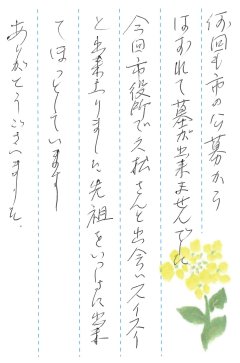 何回も市の公募から
はずれて墓が出来ませんでした
今回市役所で久松さんと出会いスイスイ
と出来上りました先祖をいっしょに出来
てほっとしています
ありがとうございました。